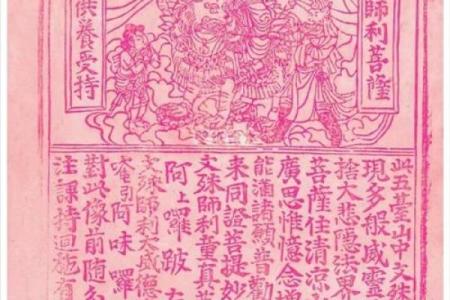 師利菩薩
供養受持
此五臺山中文殊
現多般威靈
捨大悲隱法界
菩薩住清涼
廣思惟憶念增
能滿諸願普勸
來同證菩提妙
文殊師利童真菩
阿上囉跛左
文殊師利大威德
唵引阿味囉
對此像前隨分
注課持迴施有